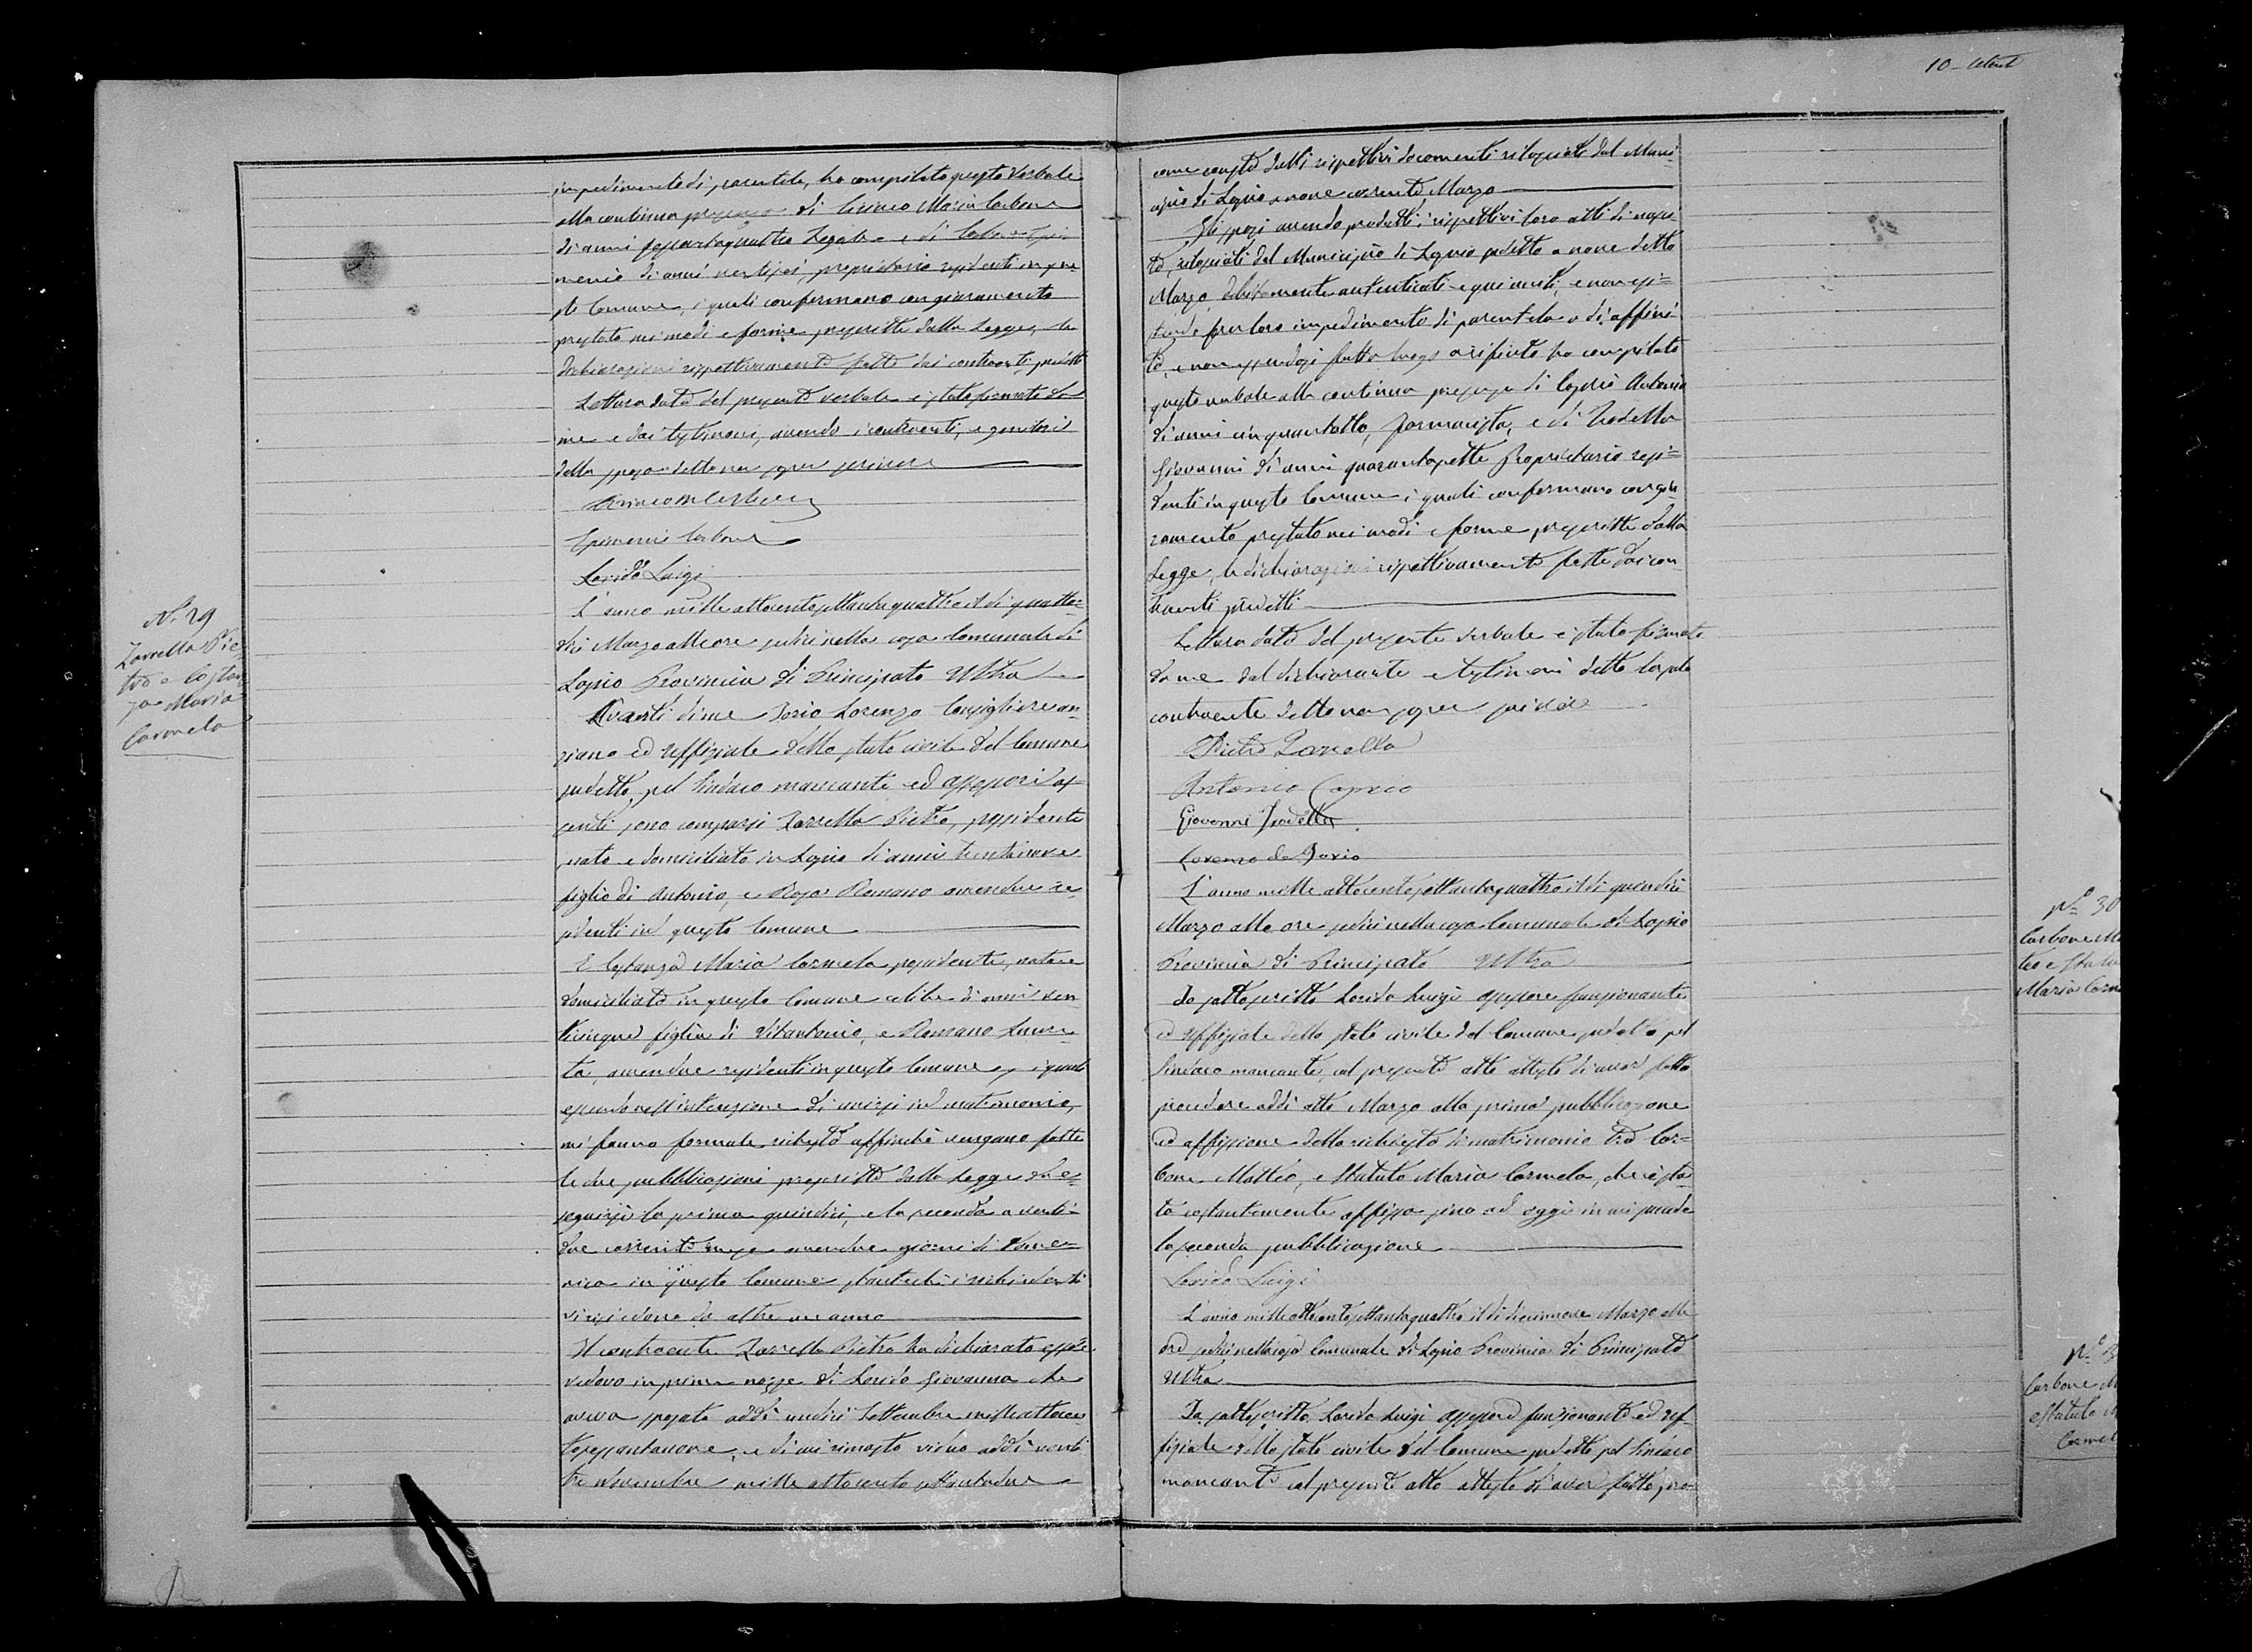 10
impedimento di parentela, ha compilato questo verbale
alla continua presenza di Ciriaco Maria Carbone
di anni sessantaquattro Legale e di Carbone Epi-
menio di anni ventisei, proprietario residenti in que-
sto Comune, i quali confermano con giuramento
prestato nei modi e forme prescritte dalla Legge, le
dichiarazioni rispettivamente fatte dai contraenti predetti
Lettura data del presente verbale è stato firmato da
me e dai testimoni, avendo i contraenti, e genitori
della sposa detto non saper scrivere
Epimenio Carbone
Lorido Luigi
N.° 29
Zarrella Pie-
tro e Costan-
za Maria
Carmela
L'anno mille ottocento settantaquattro il dì quattor-
dici Marzo alle ore sedici nella casa Comunale di
Lapio Provincia di Principato Ultra
Avanti di me Iorio Lorenzo Consigliere an-
ziano ed uffiziale dello stato civile del Comune
sudetto, pel Sindaco mancante ed assessori as-
senti sono comparsi Zarrella Pietro, possidente
nato e domiciliato in Lapio di anni trentanove
figlio di Antonio, e Rosa Romano amendue re-
sidenti in questo Comune
E Costanza Maria Carmela possidente, nata e
domiciliata in questo Comune celibe di anni ven-
ticinque figlia di Vitantonio, e Romano Laure-
ta, amendue residenti in questo Comune, i quali
essendo nell'intenzione di unirsi in matrimonio,
mi fanno formale richiesta affinchè vengano fatte
le due pubblicazioni prescritte dalla Legge da e-
seguirsi la prima quindici, e la seconda a venti-
due corrente mese amendue giorni di Dome-
nica in questo Comune stantechè i richiedenti
vi risiedono da oltre un anno
Il contraente Zarrella Pietro ha dichiarato essere
vedovo in prime nozze di Lorido Giovanna che
aveva sposato addì undici Settembre mille ottocen-
tosessantanove, e di cui rimasto vedovo addì venti
tre Novembre mille ottocento settantadue
come consta dalli rispettivi documenti rilasciati dal Muni-
cipio di Lapio a nove corrente Marzo
Gli sposi avendo prodotti i rispettivi loro atti di nasci-
ta, rilasciati dal Municipio di Lapio sudetto a nove detto
Marzo debitamente autenticati e qui uniti, e non esi-
stendo fra loro impedimento di parentela o di affini-
tà, e non essendosi fatto luogo a rifiuto ho compilato
questo verbale alla continua presenza di Caprio Antonio
di anni cinquantotto, farmacista, e di Trodella
Giovanni di anni quarantasette Proprietario resi-
denti in questo Comune i quali confermano con giu-
ramento prestato nei modi e forme prescritte dalla
Legge, le dichiarazioni rispettivamente fatte dai con-
traenti predetti
Lettura data del presente verbale è stato firmato
da me dal dichiarante e testimoni detto la sola
contraente detto non saper scrivere
Pietro Zarrella
Antonio Caprio
Giovanni Trodella
Lorenzo de Iorio
N.° 30
Carbone Ma
teo e Statu
Maria Carm
L'anno mille ottocento settantaquattro il dì quindici
Marzo alle ore sedici nella casa Comunale di Lapio
Provincia di Principato Ultra
Io sottoscritto Lorido Luigi assessore funzionante
ed uffiziale dello stato civile del Comune sudetto pel
Sindaco mancante, col presente atto attesto di aver fatto
procedere addì otto Marzo alla prima pubblicazione
ed affissione della richiesta di matrimonio tra Car-
bone Matteo, e Statuto Maria Carmela, che è sta-
ta costantemente affissa sino ad oggi in cui succede
la seconda pubblicazione
Lorido Luigi
N.°
Carbone M
e Statuto M
Carmel
L'anno mille ottocento settantaquattro il dì diciannove Marzo alle
ore sedici nella casa Comunale di Lapio Provincia di Principato
Ultra
Io sottoscritto Lorido Luigi assessore funzionante ed uf-
fiziale dello stato civile del Comune sudetto pel Sindaco
mancante col presente atto attesto di aver fatto pro-